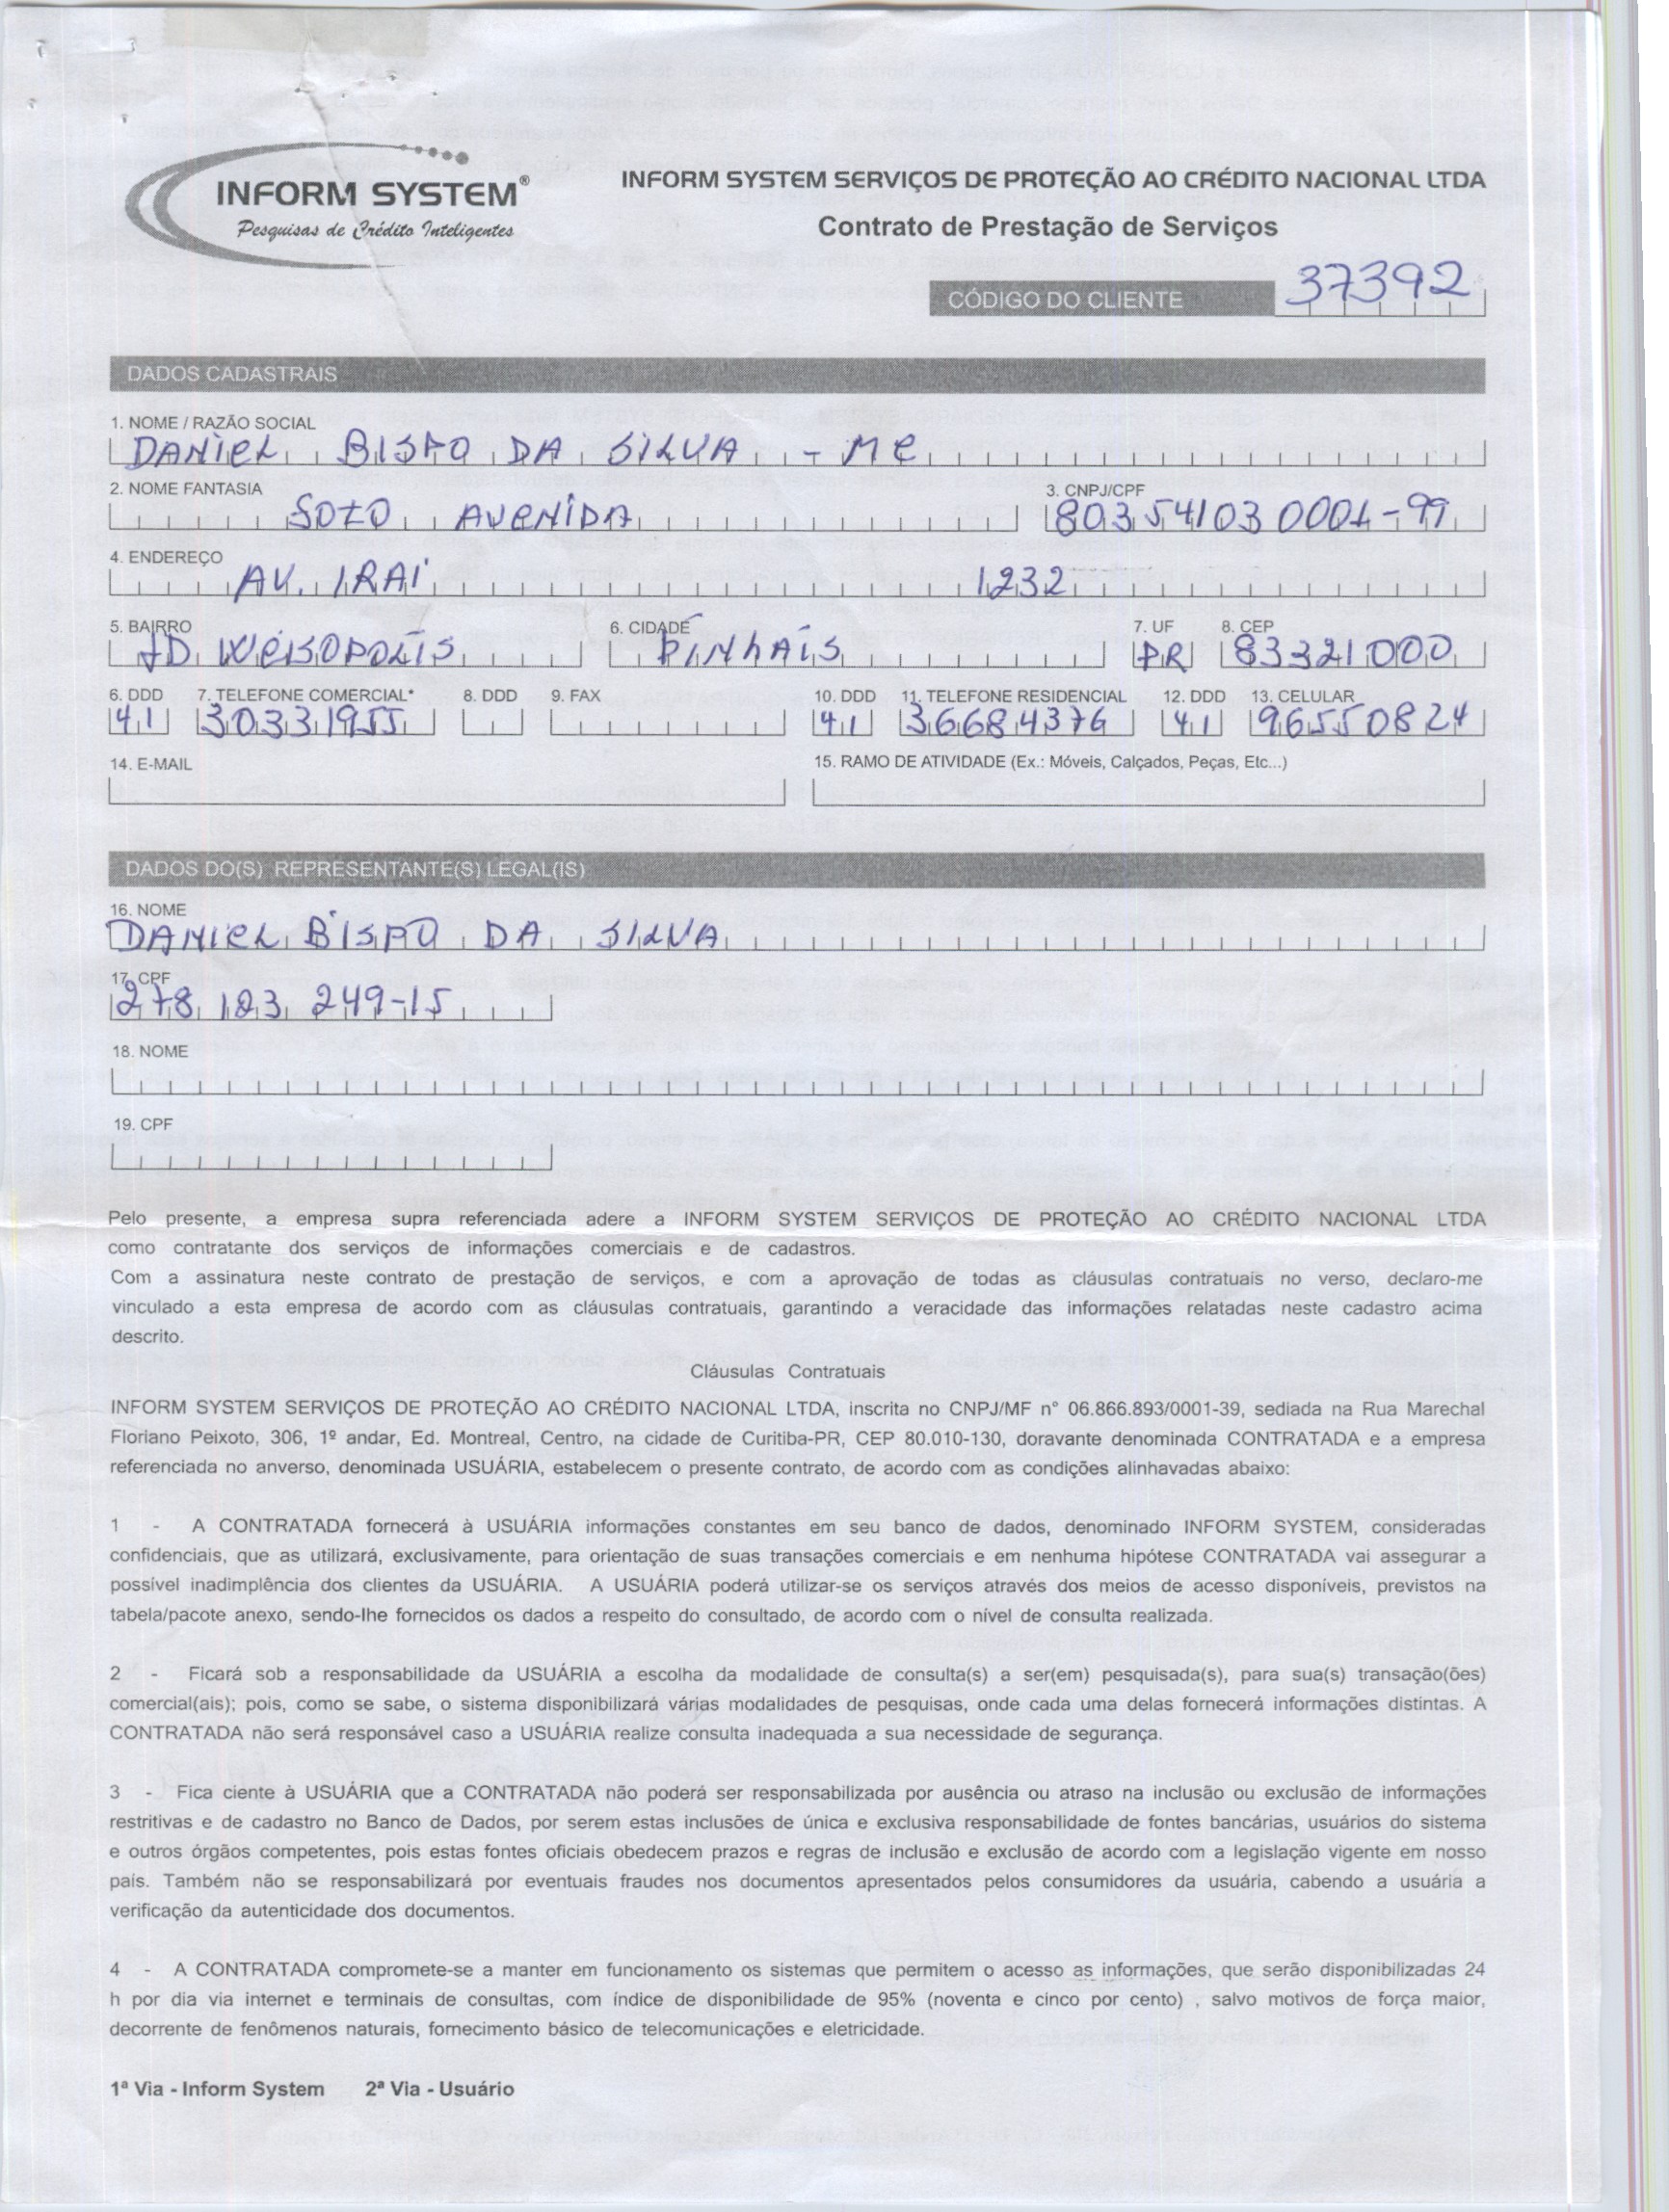 INFORM SYSTEM®
Pesquisas de Crédito Inteligentes
INFORM SYSTEM SERVIÇOS DE PROTEÇÃO AO CRÉDITO NACIONAL LTDA
Contrato de Prestação de Serviços
CÓDIGO DO CLIENTE 37392
DADOS CADASTRAIS
1. NOME / RAZÃO SOCIAL
DANIEL BISPO DA SILVA - ME
2. NOME FANTASIA 3. CNPJ/CPF
AVENIDA 803541030001-99
4. ENDEREÇO
AV. IRAI 1232
5. BAIRRO 6. CIDADE 7. UF 8. CEP
JD WEISOPOLIS PINHAIS PR 83321000
6. DDD 7. TELEFONE COMERCIAL* 8. DDD 9. FAX 10. DDD 11. TELEFONE RESIDENCIAL 12. DDD 13. CELULAR
41 30331955 41 36684376 41 96550824
14. E-MAIL 15. RAMO DE ATIVIDADE (Ex.: Móveis, Calçados, Peças, Etc...)
DADOS DO(S) REPRESENTANTE(S) LEGAL(IS)
16. NOME
DANIEL BISPO DA SILVA
17. CPF
278 123 249-15
18. NOME
19. CPF
Pelo presente, a empresa supra referenciada adere a INFORM SYSTEM SERVIÇOS DE PROTEÇÃO AO CRÉDITO NACIONAL LTDA
como contratante dos serviços de informações comerciais e de cadastros.
Com a assinatura neste contrato de prestação de serviços, e com a aprovação de todas as cláusulas contratuais no verso, declaro-me
vinculado a esta empresa de acordo com as cláusulas contratuais, garantindo a veracidade das informações relatadas neste cadastro acima
descrito.
Cláusulas Contratuais
INFORM SYSTEM SERVIÇOS DE PROTEÇÃO AO CRÉDITO NACIONAL LTDA, inscrita no CNPJ/MF n° 06.866.893/0001-39, sediada na Rua Marechal
Floriano Peixoto, 306, 1º andar, Ed. Montreal, Centro, na cidade de Curitiba-PR, CEP 80.010-130, doravante denominada CONTRATADA e a empresa
referenciada no anverso, denominada USUÁRIA, estabelecem o presente contrato, de acordo com as condições alinhavadas abaixo:
1 - A CONTRATADA fornecerá à USUÁRIA informações constantes em seu banco de dados, denominado INFORM SYSTEM, consideradas
confidenciais, que as utilizará, exclusivamente, para orientação de suas transações comerciais e em nenhuma hipótese CONTRATADA vai assegurar a
possível inadimplência dos clientes da USUÁRIA. A USUÁRIA poderá utilizar-se os serviços através dos meios de acesso disponíveis, previstos na
tabela/pacote anexo, sendo-lhe fornecidos os dados a respeito do consultado, de acordo com o nível de consulta realizada.
2 - Ficará sob a responsabilidade da USUÁRIA a escolha da modalidade de consulta(s) a ser(em) pesquisada(s), para sua(s) transação(ões)
comercial(ais); pois, como se sabe, o sistema disponibilizará várias modalidades de pesquisas, onde cada uma delas fornecerá informações distintas. A
CONTRATADA não será responsável caso a USUÁRIA realize consulta inadequada a sua necessidade de segurança.
3 - Fica ciente à USUÁRIA que a CONTRATADA não poderá ser responsabilizada por ausência ou atraso na inclusão ou exclusão de informações
restritivas e de cadastro no Banco de Dados, por serem estas inclusões de única e exclusiva responsabilidade de fontes bancárias, usuários do sistema
e outros órgãos competentes, pois estas fontes oficiais obedecem prazos e regras de inclusão e exclusão de acordo com a legislação vigente em nosso
país. Também não se responsabilizará por eventuais fraudes nos documentos apresentados pelos consumidores da usuária, cabendo a usuária a
verificação da autenticidade dos documentos.
4 - A CONTRATADA compromete-se a manter em funcionamento os sistemas que permitem o acesso as informações, que serão disponibilizadas 24
h por dia via internet e terminais de consultas, com índice de disponibilidade de 95% (noventa e cinco por cento) , salvo motivos de força maior,
decorrente de fenômenos naturais, fornecimento básico de telecomunicações e eletricidade.
1ª Via - Inform System 2ª Via - Usuário